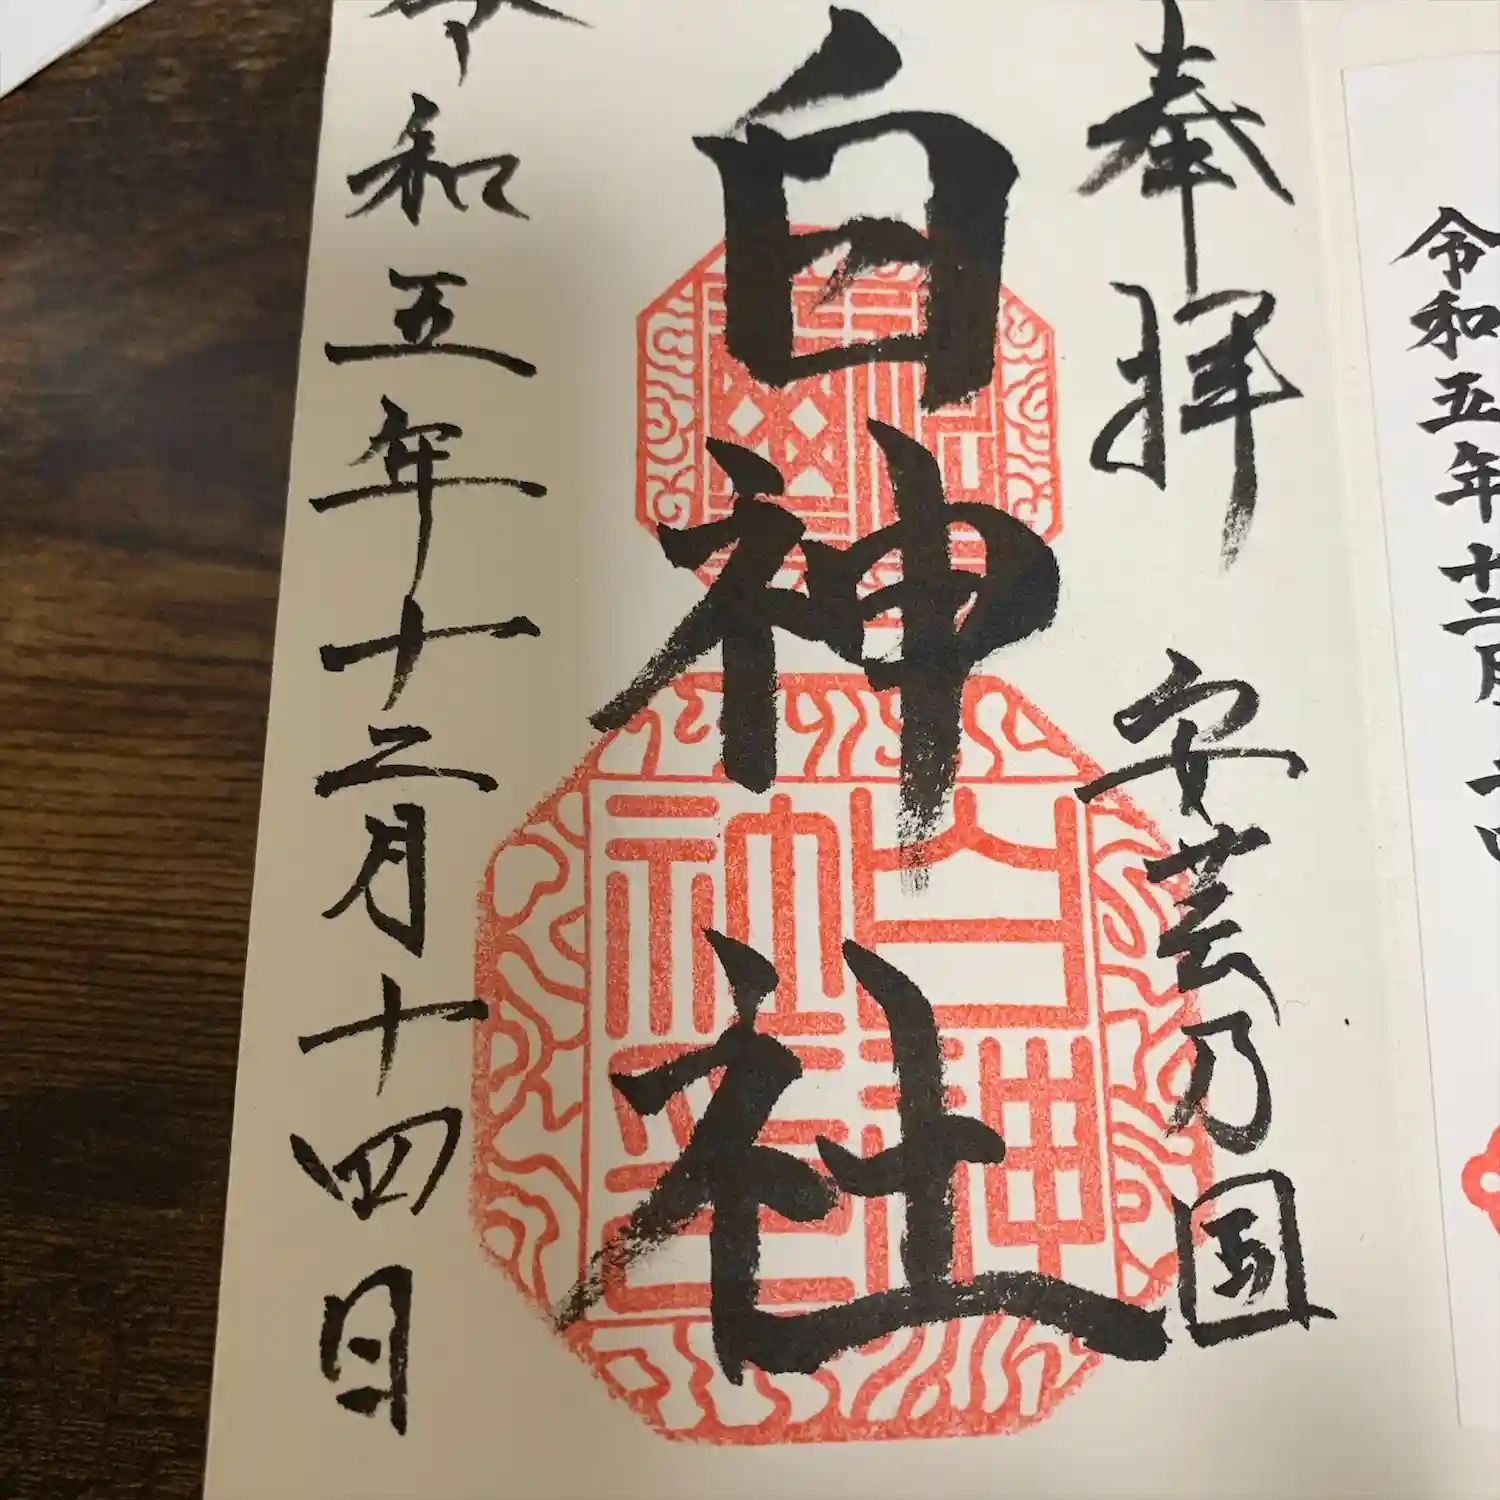 奉拝 安芸乃国
白神社
令和五年十二月十四日
令和五年十二月十四